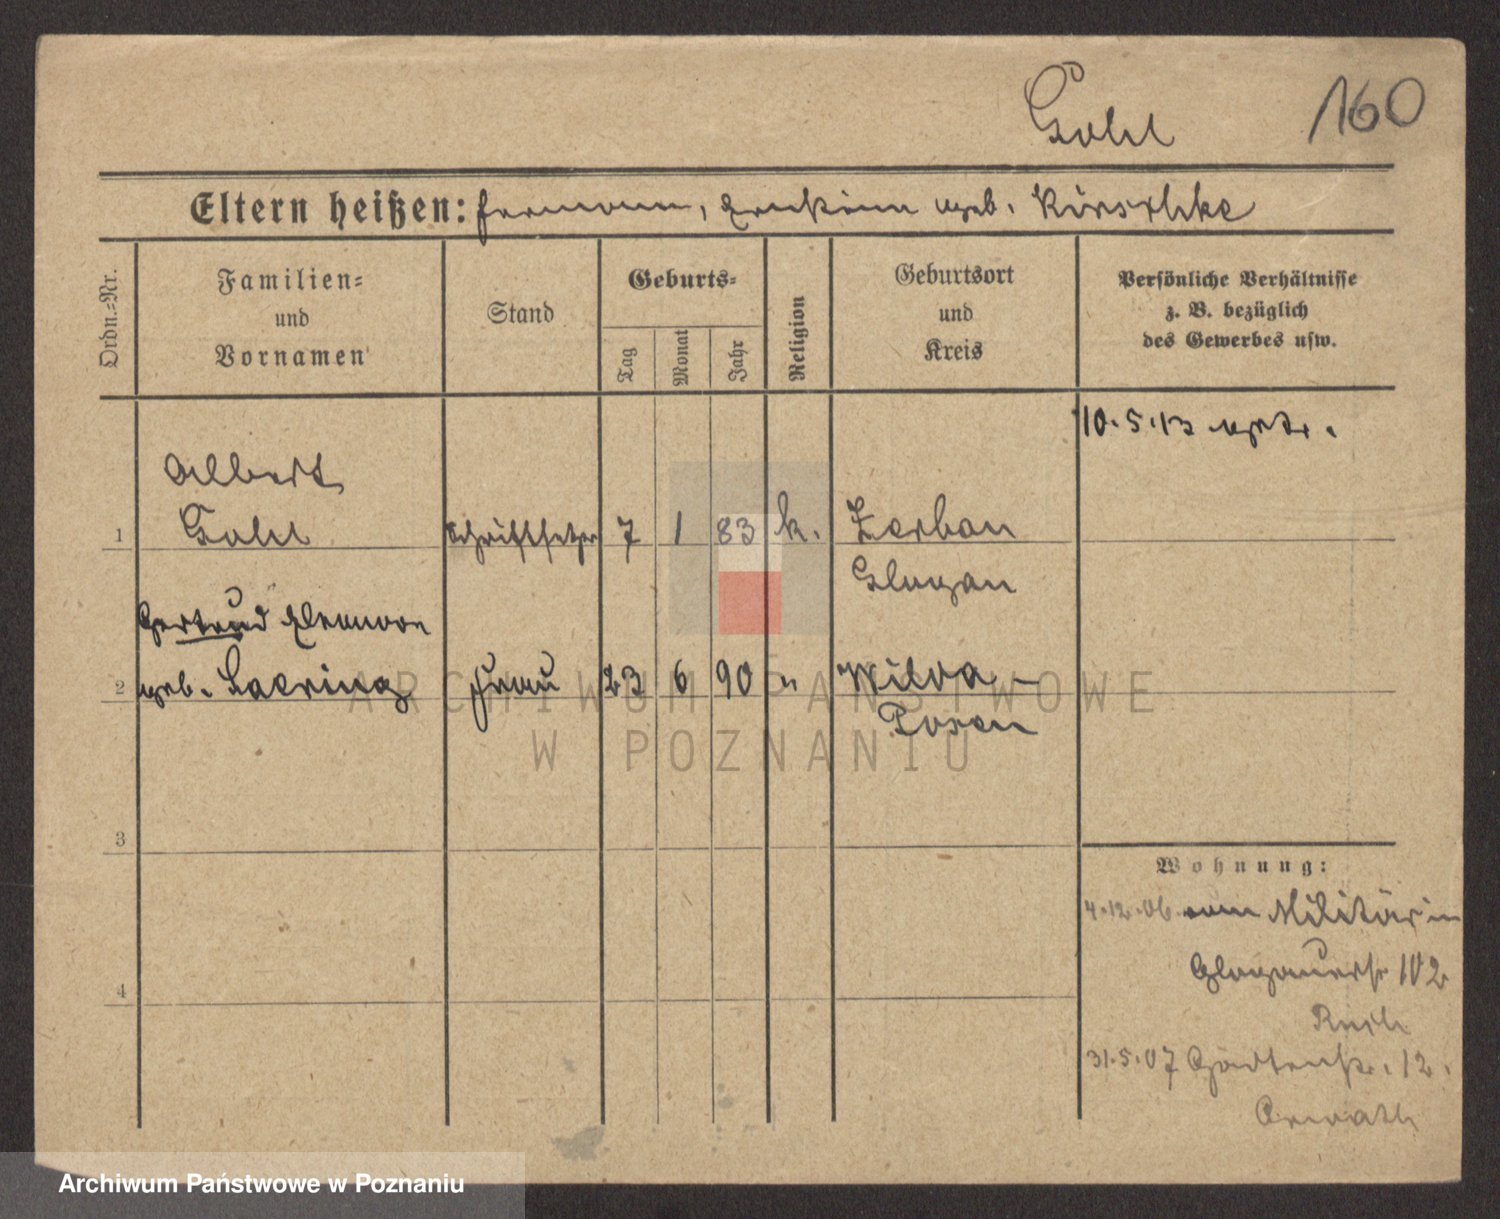 Gohl 160
Eltern heißen: Hermann, Ernstine geb. Kirschke
Ordn.-Nr.
Familien-
und
Vornamen
Stand
Geburts-
Tag
Monat
Jahr
Religion
Geburtsort
und
Kreis
Persönliche Verhältnisse
z. B. bezüglich
des Gewerbes usw.
10.5.13
Albert
1 Gohl Schriftsetzer 7 1 83 k. Zerbau
Glogau
Gertrud Eleonore
2 geb. Haering Frau 23 6 90 " Wilda -
Posen
3
4
Wohnung:
4.12.06 vom Militär in
Glogauerstr 102
31.5.07 Gartenstr. 12.
ARCHIWUM PAŃSTWOWE
W POZNANIU
Archiwum Państwowe w Poznaniu